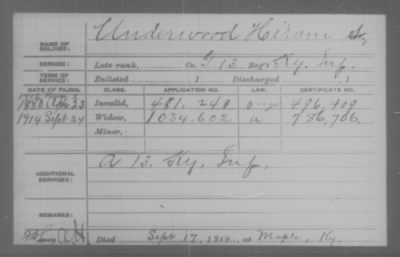 NAME OF SOLDIER: Underwood Hiram
SERVICE: Late rank, Co. G 13 Reg't Ky. Inf.
TERM OF SERVICE: Enlisted , 1 Discharged , 1
DATE OF FILING. CLASS. APPLICATION NO. LAW. CERTIFICATE NO.
Invalid, 481.240 496.409
1914 Sept 24 Widow, 1034.602 a 786,766.
Minor,
ADDITIONAL SERVICES: A 13. Ky. Inf.
REMARKS:
Died Sept 17, 1914, at Maple, Ky.